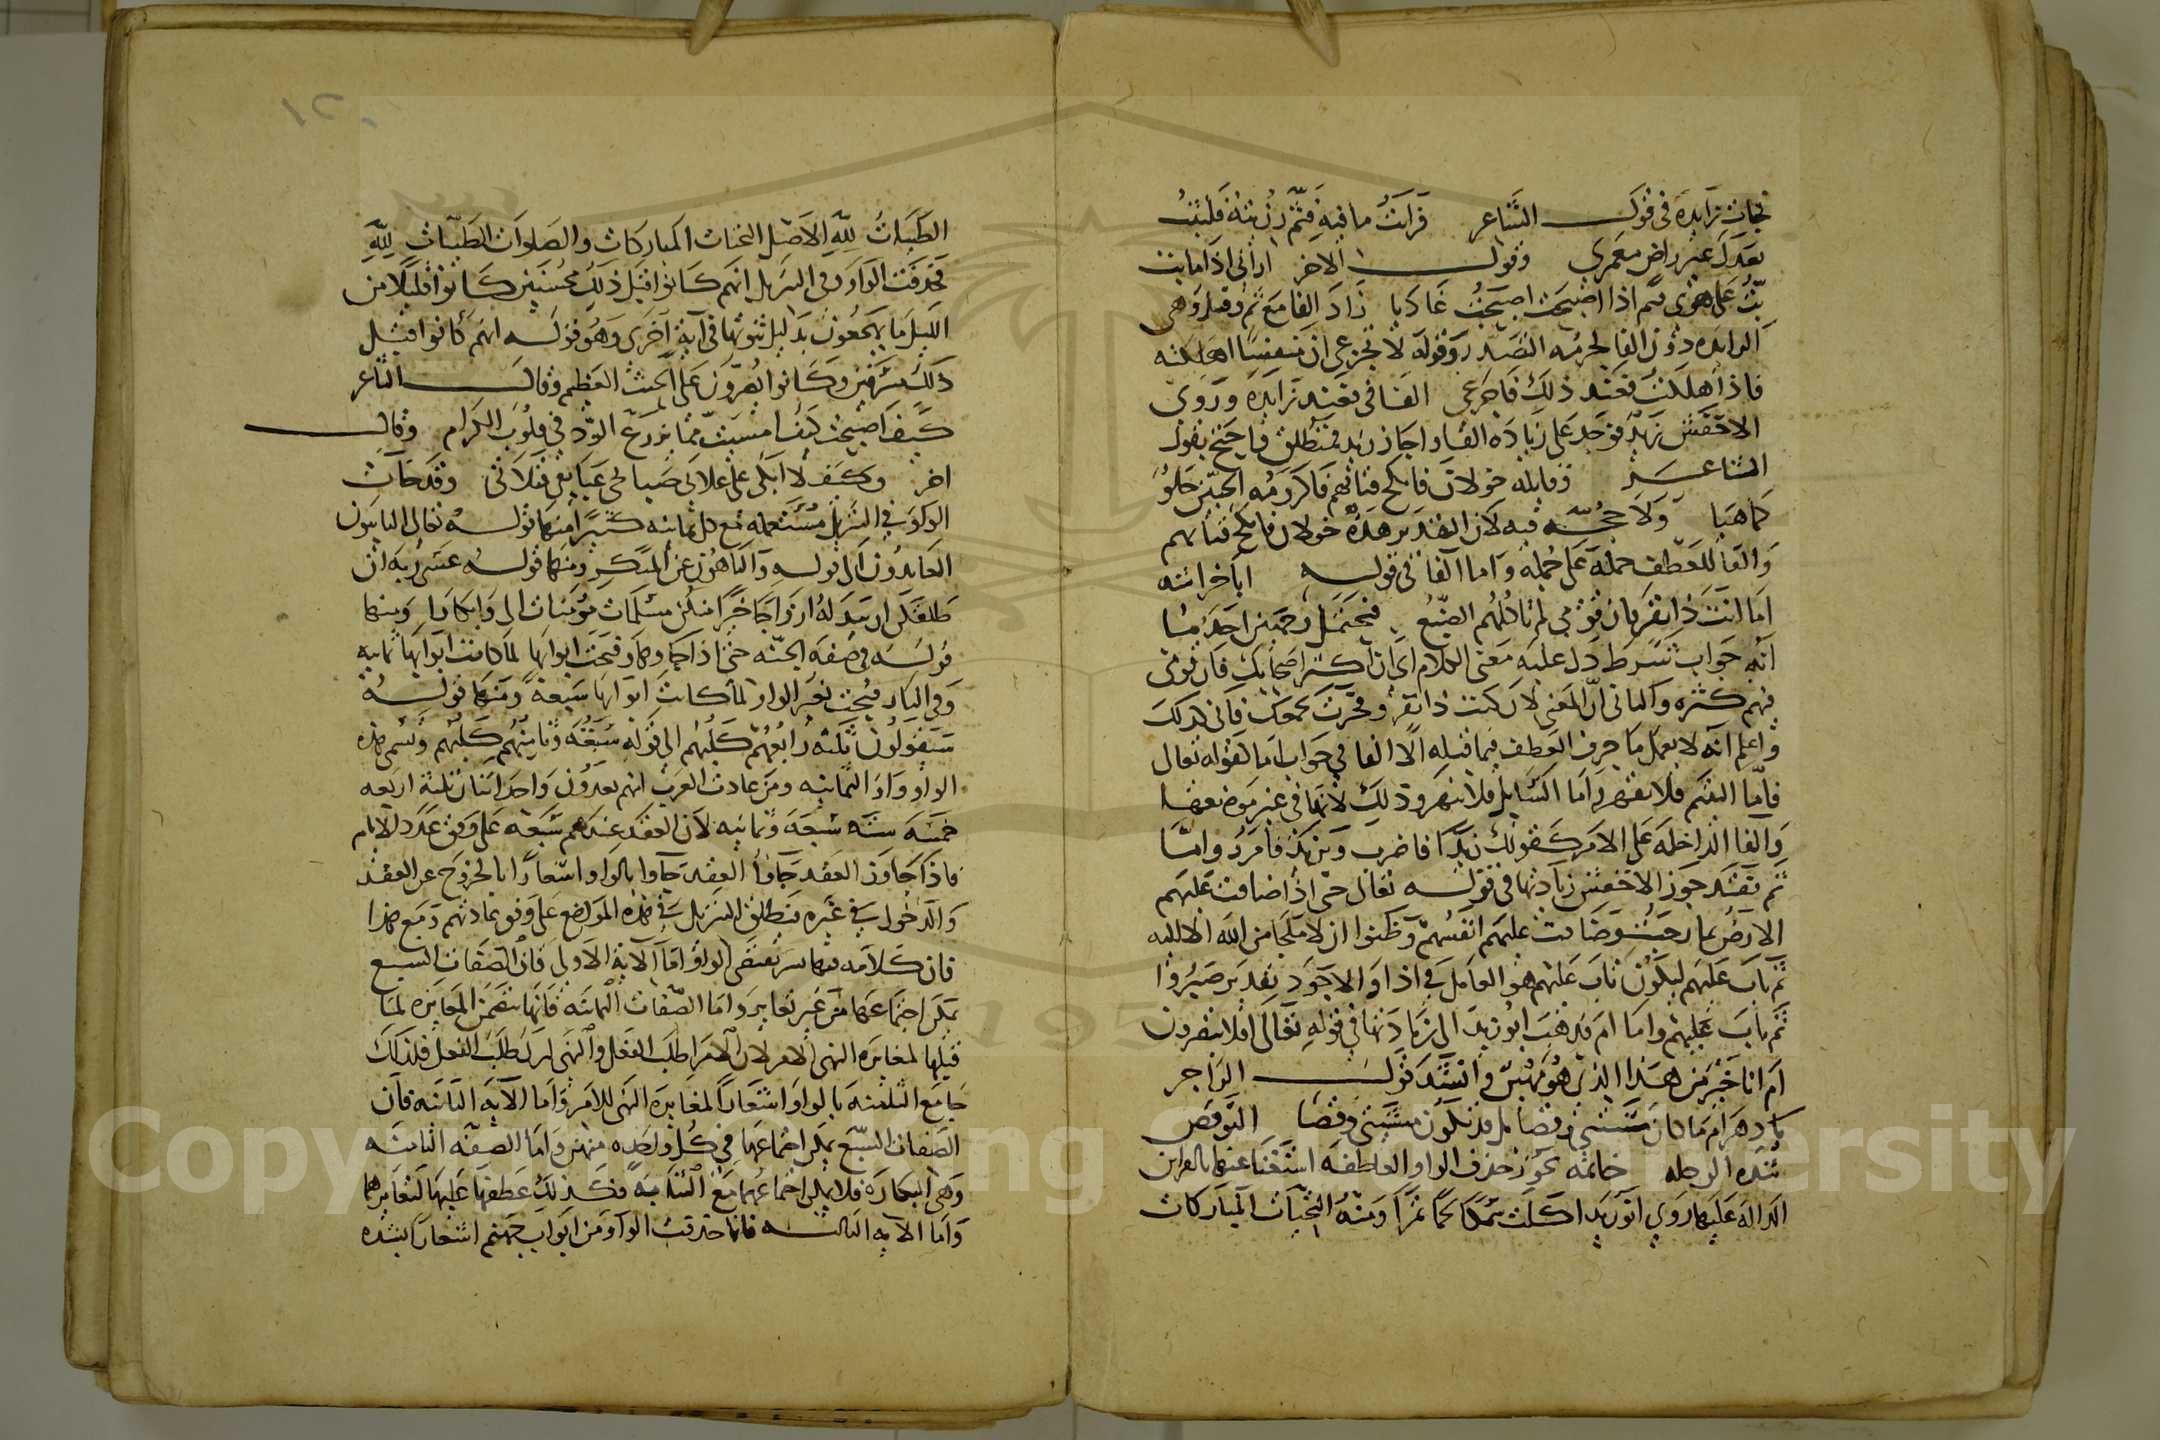 نجات زايدة في قول الشاعر فرأيت ما فيه فثم رزئته فلبثت
بعدك غير راض معمري وقول الاخر اراني اذا ما بت
بت على هوى ثم اذا اصبحت اصبحت غاديا زاد الفا مع ثم وقيل وهي
الزايدة دون الفا لحرمه التصدر وقوله لا تجزعي ان منفسا اهلكته
فاذا هلكت فعند ذلك فاجزعي الفا في فعند زايدة وروى
الاخفش زيد فوجد على زيادة الفا واجاز زيد فمنطلق واحتج بقول
الشاعر وقايلة خولان فانكح فتاتهم فاكرومه الحيين خلو
كما هيا ولا حجة فيه لان التقدير هذه خولان فانكح فتاتهم
والفا للعطف جملة على جملة واما الفا في قوله ابا خراشه
اما انت ذا نفر فان قومي لم تاكلهم الضبع فيحتمل وجهين احدهما
انه جواب شرط دل عليه معنى الكلام اي ان كثر اصحابك فان قومي
فيهم كثره والثاني ان المعنى لان كنت ذا نفر وفخرت بجمعك فاني كذلك
واعلم انه لا يعمل ما بعد حرف العطف فيما قبله الا الفا في جواب اما كقوله تعالى
فاما اليتيم فلا تقهر واما السايل فلا تنهر وذلك لانها في غير موضعها
والفا الداخلة على الامر كقولك زيدا فاضرب وبزيد فامرر واما
ثم فقد جوز الاخفش زيادتها في قوله تعالى حتى اذا ضاقت عليهم
الارض بما رحبت وضاقت عليهم انفسهم وظنوا ان لا ملجا من الله الا اليه
ثم تاب عليهم ليكون تاب عليهم هو العامل في اذا والاجود تقدير صبروا
ثم تاب عليهم واما ام فذهب ابو زيد الى زيادتها في قوله تعالى افلا تبصرون
ام انا خير من هذا الذي هو مهين وانشد قول الراجز
يا دهر ام ما كان مشيتي رقصا بل قد تكون مشيتي رقصا التوقص
شدة الوطء خاتمة يجوز حذف الواو العاطفة استغناء عنها بالقراين
الدالة عليها روى ابو زيد اكلت سمكا لحما تمرا ومنه التحيات المباركات
الطيبات لله الاصل التحيات المباركات والصلوات الطيبات لله
فحذفت الواو وفي التنزيل انهم كانوا قبل ذلك محسنين كانوا قليلا من
الليل ما يهجعون بدليل ثبوتها في آية اخرى وهو قوله انهم كانوا قبل
ذلك مترفين وكانوا يصرون على الحنث العظيم وقال الشاعر
كيف اصبحت كيف امسيت مما يزرع الود في قلوب الكرام وقال
اخر وكيف لا ابكي على علاتي صبايحي غبايقي قيلاتي وقد جات
الواو في التنزيل مستعملة مع كل ثمانية كثيرا منها قوله تعالى التايبون
العابدون الى قوله والناهون عن المنكر ومنها قوله عسى ربه ان
طلقكن ان يبدله ازواجا خيرا منكن مسلمات مؤمنات الى وابكارا ومنها
قوله في صفة الجنة حتى اذا جاوها وفتحت ابوابها لما كانت ابوابها ثمانية
وفي النار فتحت بغير الواو لما كانت ابوابها سبعة ومنها قوله
سيقولون ثلثة رابعهم كلبهم الى قوله سبعة وثامنهم كلبهم وتسمى هذه
الواو واو الثمانية ومن عادت العرب انهم يعدون واحد اثنان ثلثة اربعة
خمسة ستة سبعة وثمانية لان العقد عندهم سبعة على وفق عدد الايام
فاذا جاوز العقد جاوا بالواو اشعارا بالخروج عن العقد
والدخول في غيره فنطلق التنزيل في هذه المواضع على وفق عادتهم ومع هذا
فان كلامه فيها سر يقتضي الواو اما الآية الاولى فان الصفات السبع
يمكن اجتماعها من غير تغاير واما الصفات الثامنة فانها تتضمن المغايرة لما
قبلها لمغايرة النهي الامر لان الامر طلب الفعل والنهي ترك طلب الفعل فلذلك
جا مع الثامنة بالواو اشعارا لمغايرة النهي للامر واما الآية الثانية فان
الصفات السبع يمكن اجتماعها في كل واحدة منهن واما الصفة الثامنة
وهي البكارة فلا يمكن اجتماعها مع الثيابة فكذلك عطفها عليها لتغايرهما
واما الآية الثالثة فانما حذفت الواو من ابواب جهنم اشعارا بشدة